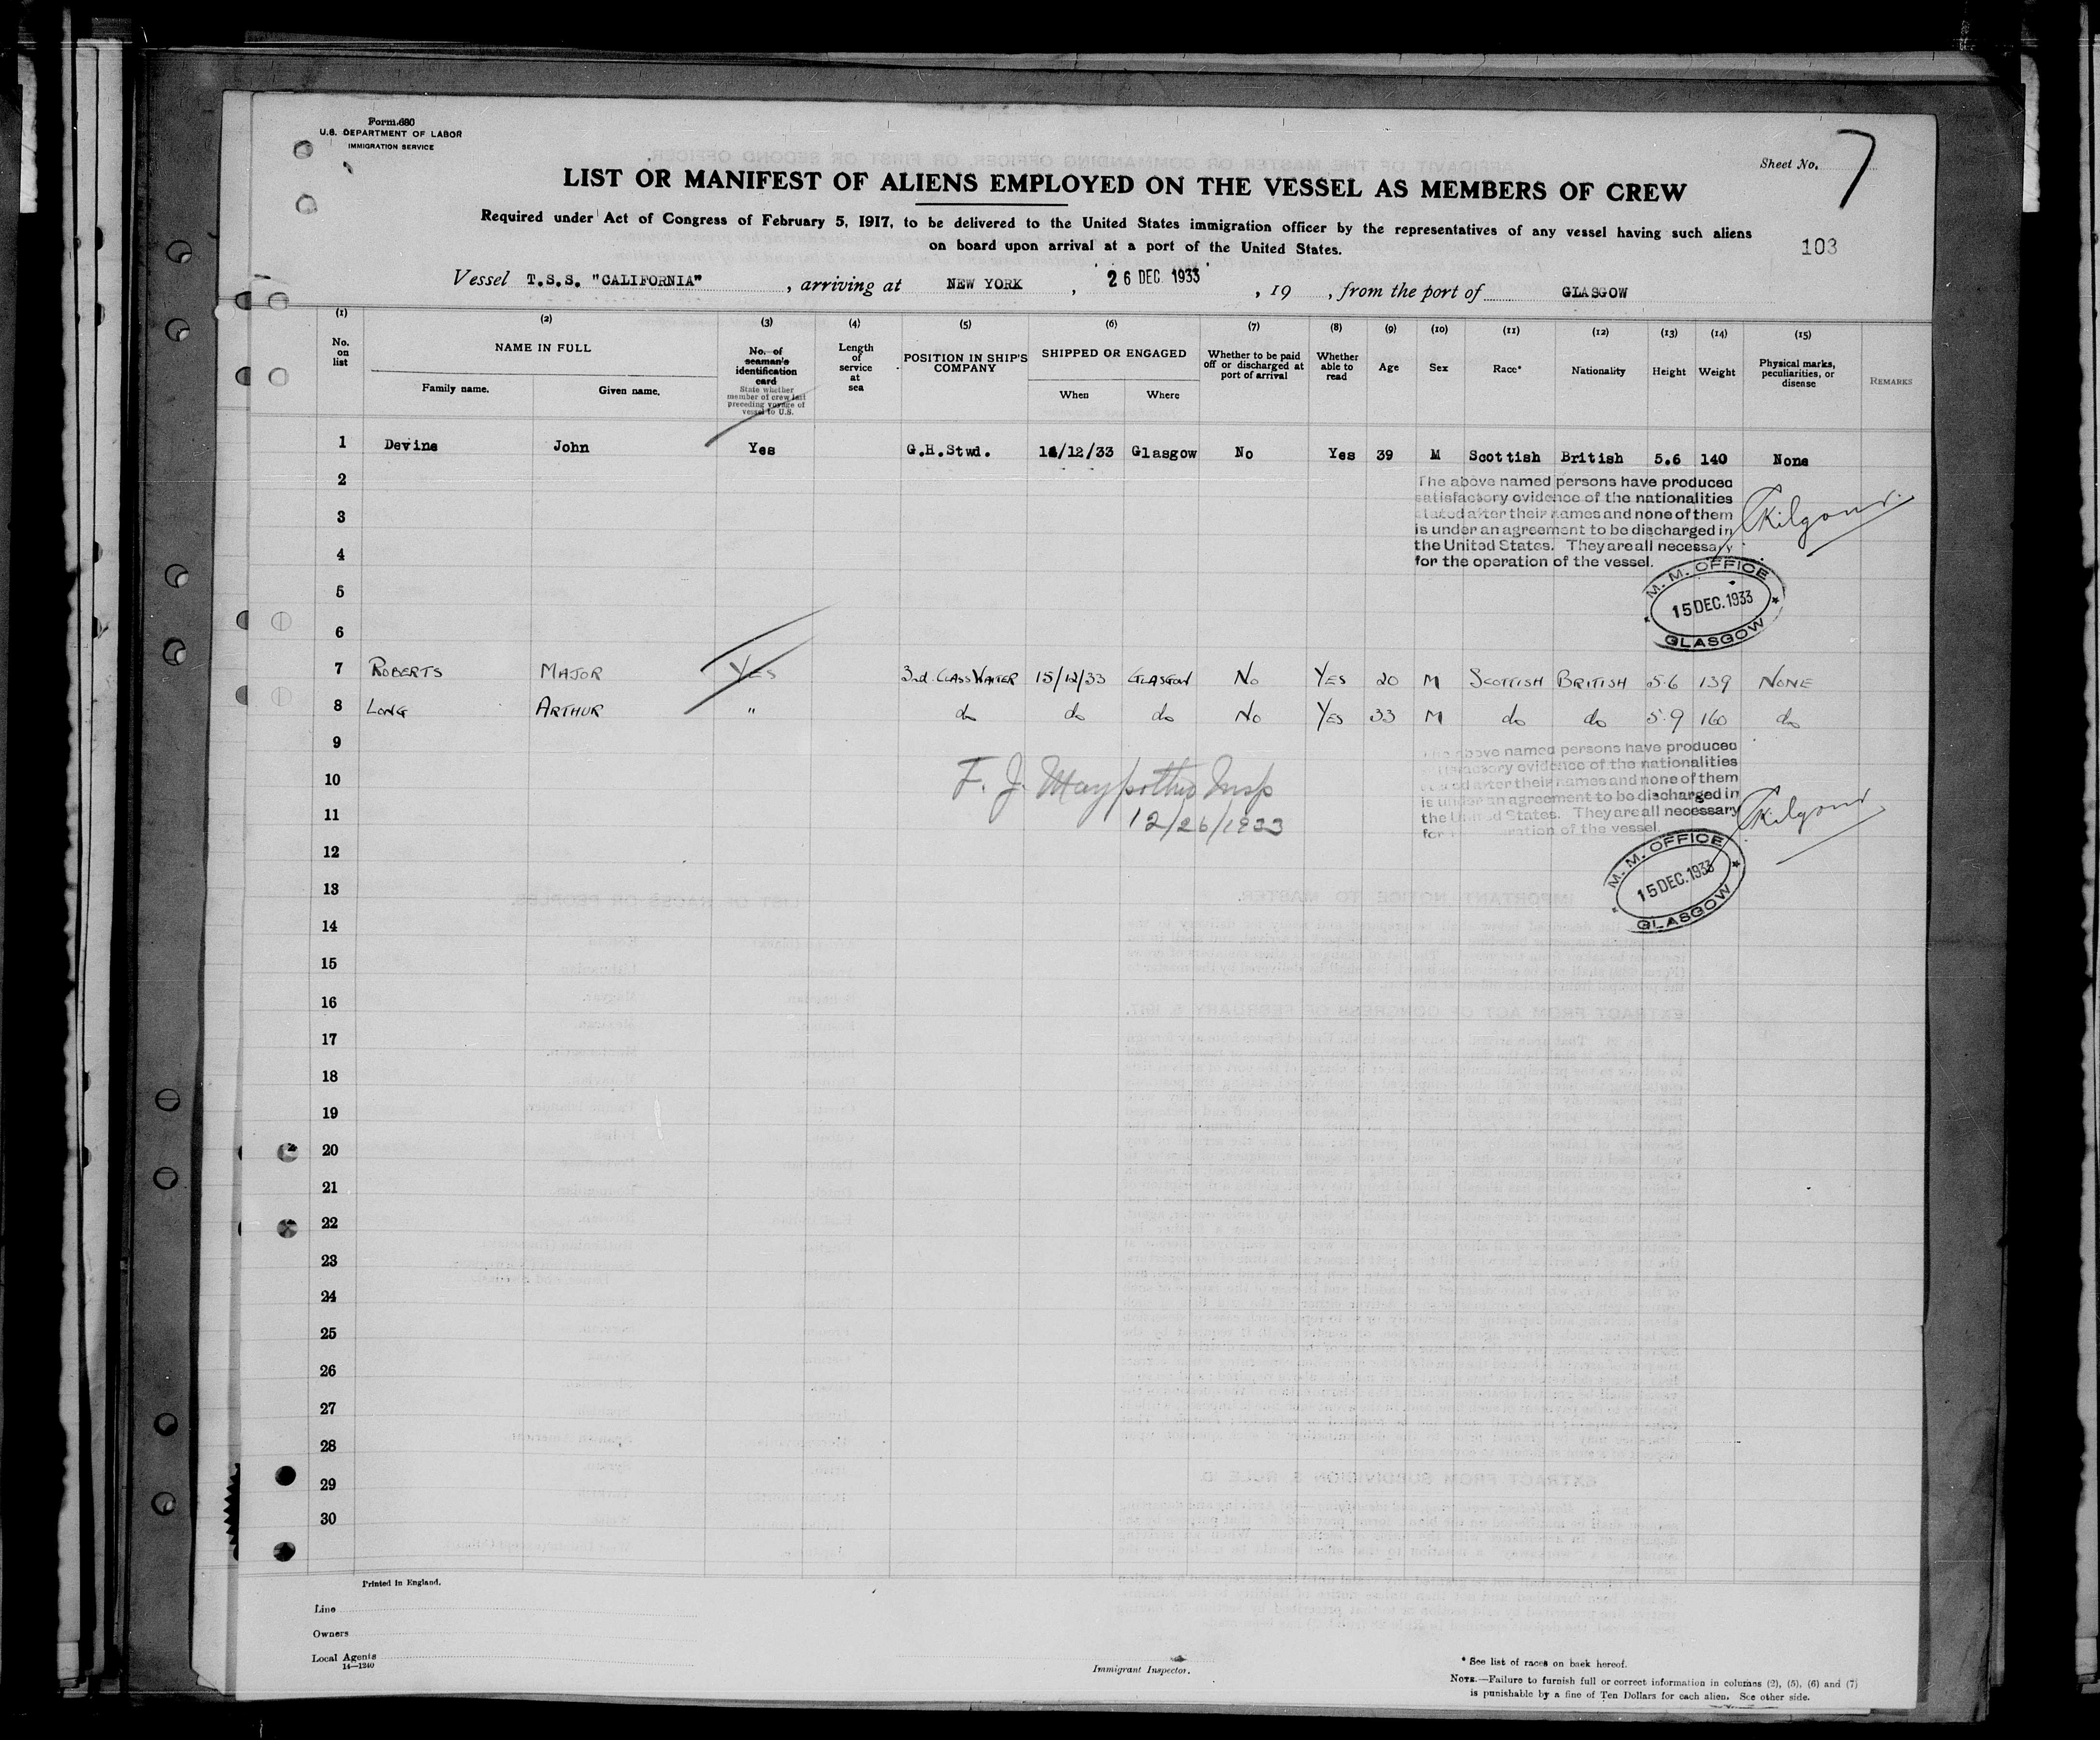 Form 680
U.S. DEPARTMENT OF LABOR
IMMIGRATION SERVICE
Sheet No. 7
LIST OR MANIFEST OF ALIENS EMPLOYED ON THE VESSEL AS MEMBERS OF CREW
Required under Act of Congress of February 5, 1917, to be delivered to the United States immigration officer by the representatives of any vessel having such aliens
on board upon arrival at a port of the United States.
103
Vessel T.S.S. "CALIFORNIA", arriving at NEW YORK, 26 DEC. 1933, 19 , from the port of GLASGOW
(1) (2) (3) (4) (5) (6) (7) (8) (9) (10) (11) (12) (13) (14) (15)
No. on list
NAME IN FULL
Family name. Given name.
No. of seaman's identification card
State whether member of crew last preceding voyage of vessel to U.S.
Length of service at sea
POSITION IN SHIP'S COMPANY
SHIPPED OR ENGAGED
When Where
Whether to be paid off or discharged at port of arrival
Whether able to read
Age
Sex
Race*
Nationality
Height
Weight
Physical marks, peculiarities, or disease
REMARKS
1 Devine John Yes G.H.Stwd. 14/12/33 Glasgow No Yes 39 M Scottish British 5.6 140 None
2
The above named persons have produced
satisfactory evidence of the nationalities
3
stated after their names and none of them
is under an agreement to be discharged in
4
the United States. They are all necessary
for the operation of the vessel.
Kilgour
5
M. M. OFFICE
15 DEC. 1933
GLASGOW
6
7 ROBERTS MAJOR YES 3rd CLASS WAITER 15/12/33 GLASGOW No YES 20 M SCOTTISH BRITISH 5.6 139 NONE
8 LONG ARTHUR " do do do No YES 33 M do do 5.9 160 do
9
The above named persons have produced
satisfactory evidence of the nationalities
10
stated after their names and none of them
is under an agreement to be discharged in
11
the United States. They are all necessary
for the operation of the vessel.
Kilgour
F. J. Insp
12/26/1933
12
M. M. OFFICE
15 DEC. 1933
GLASGOW
13
14
15
16
17
18
19
20
21
22
23
24
25
26
27
28
29
30
Printed in England.
Line
Owners
Local Agents
14—1240
Immigrant Inspector.
* See list of races on back hereof.
NOTE.—Failure to furnish full or correct information in columns (2), (5), (6) and (7)
is punishable by a fine of Ten Dollars for each alien. See other side.